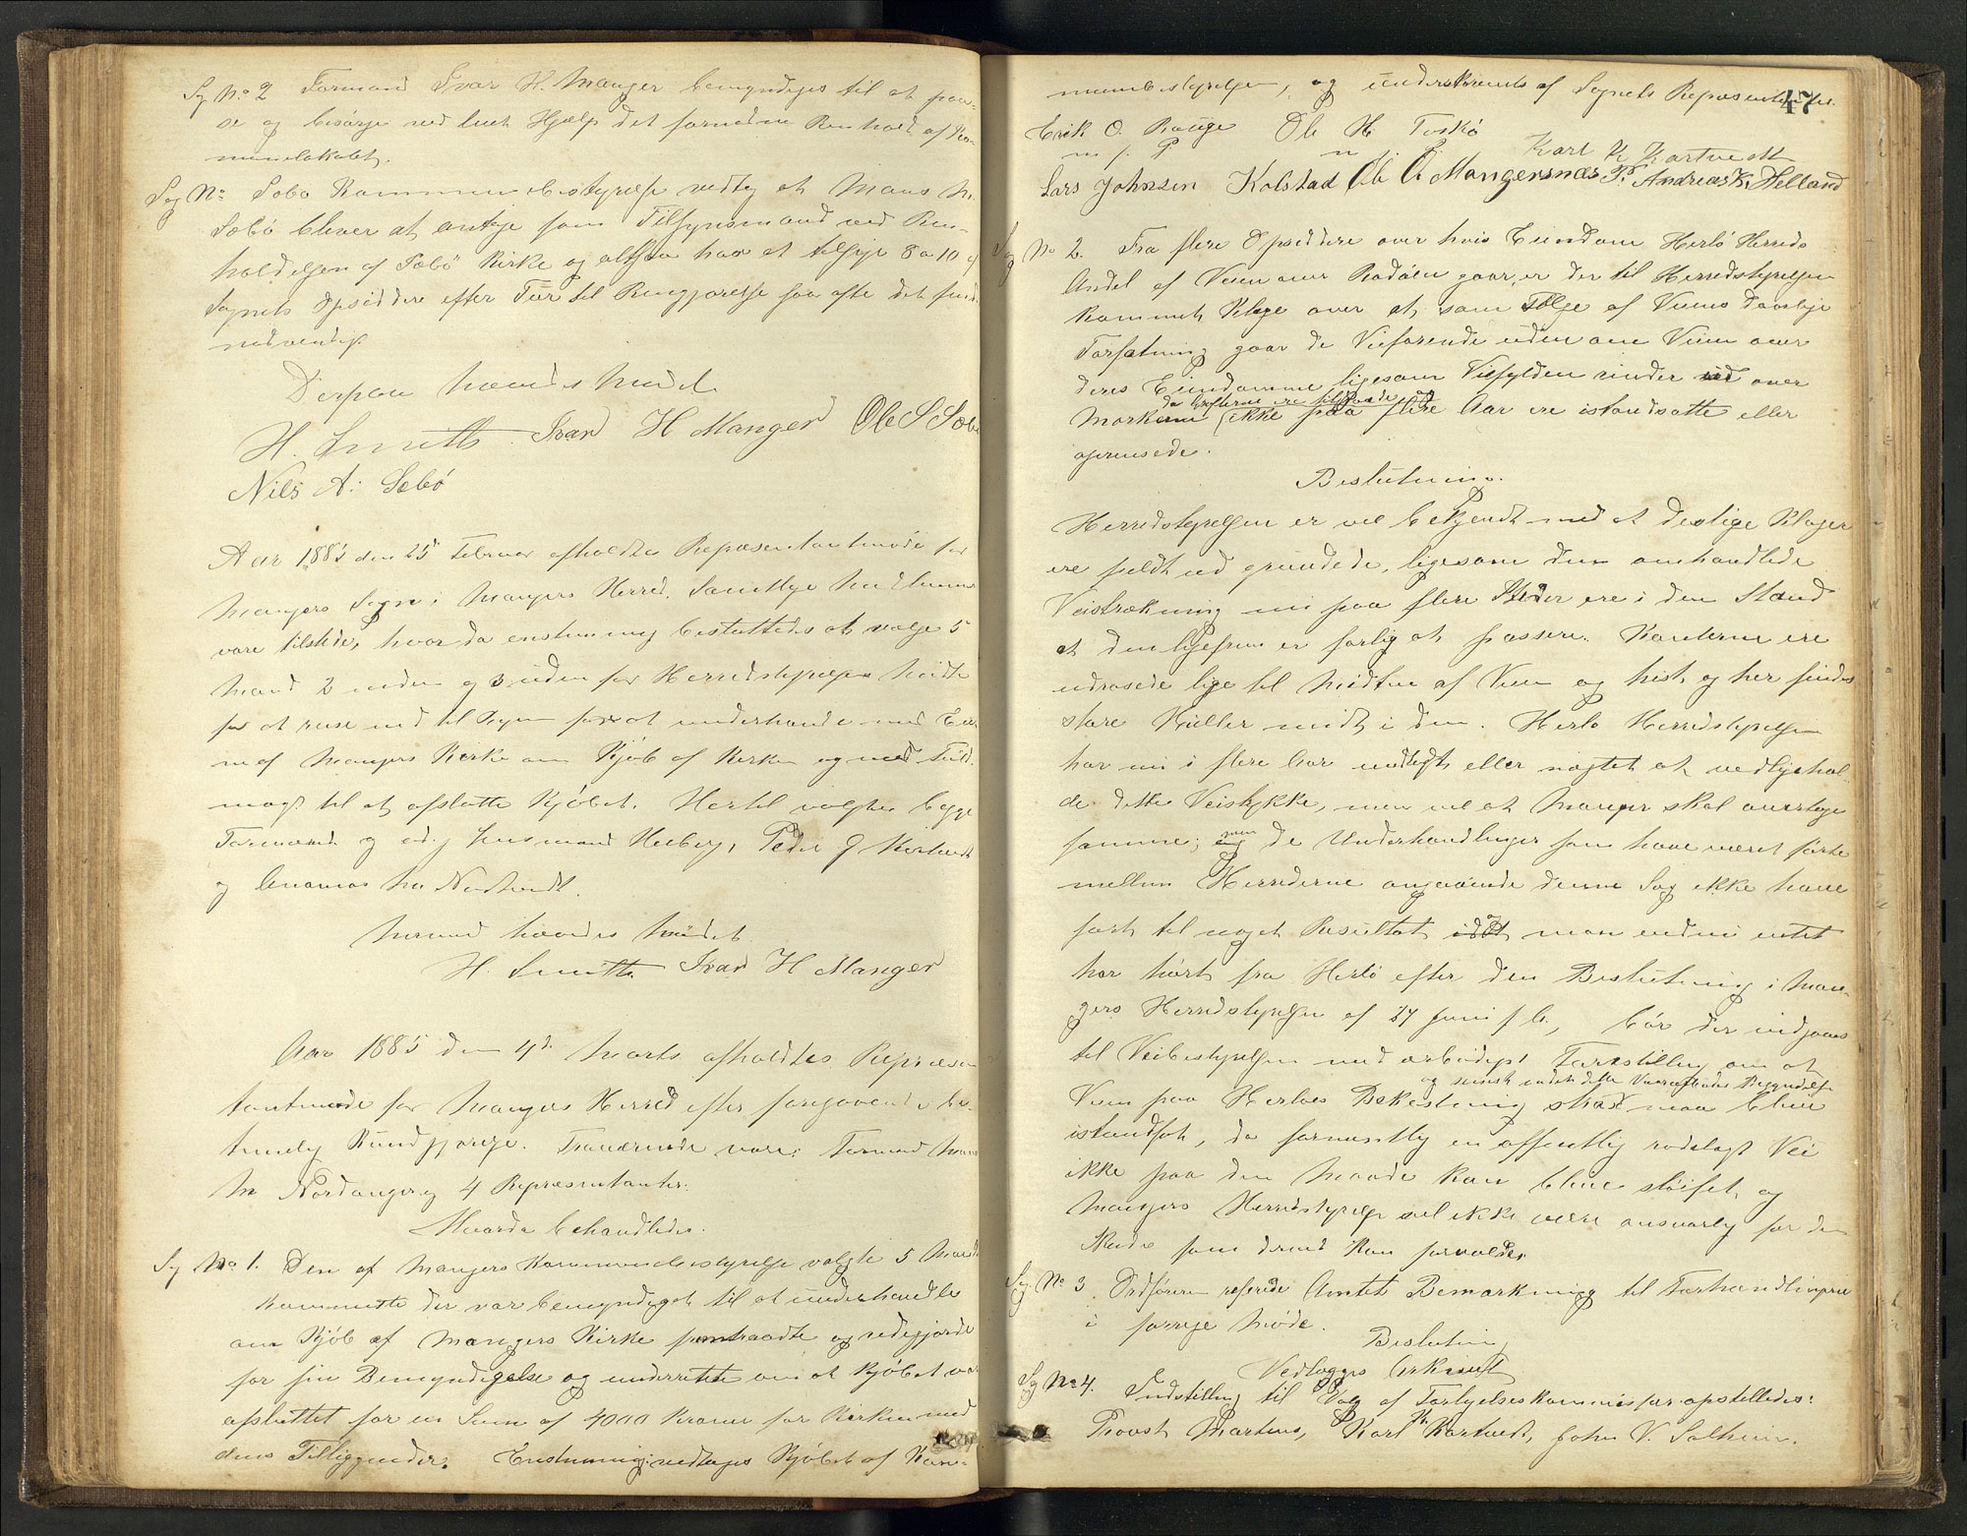 Sg No 2 Formand Ivar H. Manger bemyndiges til at paa-
se og besørge ved leiet Hjælp det fornødne Renhold af Kom-
munelokalet.
Sag No Sæbø Kommunebestyrelse vedtog at Mons M.
Sæbø bliver at antage som Tilsynsmand ved Ren-
holdelsen af Sæbø Kirke og altsaa har at tilsige 8 a 10 af
Sognets Opsiddere efter Tur til Rengjørelse saa ofte det findes
nødvendigt
Derpaa hævedes Mødet
H. Smith Ivar H Manger Ole S Sæbø
Nils A: Sebö
Aar 1885 den 25 Februar afholdtes Repræsentantmøde for
Mangers Sogn i Mangers Herred. Samtlige Medlemmer
vare tilstede, hvor da enstemmig besluttedes at vælge 5
Mænd 2 inden og 3 uden for Herredstyrelsens Midte
for at reise ned til Byen for at underhandle med Eier-
ne af Mangers Kirke om Kjøb af Kirken og med Fuld-
magt til at afslutte Kjøbet. Hertil valgtes begge
Formænd og Lensmand Heiberg, Peder J Kartveit
og Ananias Nordtveidt.
Hermed hævedes Mødet
H. Smith Ivar H Manger
Aar 1885 den 4de Marts afholdtes Repræsen-
tantmøde for Mangers Herred efter foregaaende be-
timelig Kundgjørelse. Fraværende vare: Formand Mons
M Nordanger og 4 Repræsentanter.
Hvorda behandledes.
Sg No 1. Den af Mangers Kommunebestyrelse valgte 5 Mands
Kommitte der var bemyndiget til at underhandle
om Kjøb af Mangers Kirke fremtraadte og redegjorde
for sin Bemyndigelse og underrettede om at Kjøbet var
afsluttet for en Sum af 4000 Kroner for Kirken med
dens Tilliggender. Enstemmig vedtages Kjøbet af Kom-
47
munebestyrelsen, og underskreves af Sognets Repræsentanter.
Erik O. Bauge Ole H. Toskö
m. f. P. Karl K Kartvedt
Lars Johnsen Kolstad Ole O. Mangersnæs Andreas K. Helland
Sag No 2. Fra flere Opsiddere over hvis Eiendom Herlö Herreds
Andel af Veien over Radöen gaar, er der til Herredstyrelsen
kommet Klage over at, som Følge af Veiens daarlige
Forfatning gaar de Veifarende uden om Veien over
deres Eiendomme ligesom Veifylden rinder ud over
da Grøfterne ere tilstoppede og
Markerne ikke paa flere Aar ere istandsatte eller
oprensede.
Beslutning.
Herredstyrelsen er vel bekjendt med at deslige Klager
ere fuldt ud grundede, ligesom den omhandlede
Veistrækning nu paa flere Steder ere i den Stand
at den ligefrem er farlig at passere. Kanterne ere
udrasede lige til Midten af Veien og hist og her findes
store Huller midt i den. Herlö Herredstyrelse
har nu i flere Aar undladt eller nægtet at vedligehol-
de dette Veistykke, men vil at Manger skal overtage
samme; men de Underhandlinger som have været førte
mellem Herrederne angaaende denne Sag ikke have
ført til noget Resultat idet og man endnu intet
har hørt fra Herlö efter den Beslutning i Man-
gers Herredstyrelse af 27 Juni f. A., bør der indgaaes
til Veibestyrelsen med ærbødigst Forestilling om at
og senest inden dette Vaararbeides Begyndelse
Veien paa Herlöes Bekostning strax maa blive
istandsat, da formentlig en offentlig rodelagt Vei
ikke paa den Maade kan blive sløifet, og
Mangers Herredstyrelse vil ikke være ansvarlig for den
Skade som derved kan forvoldes
Sag No 3. Ordføreren refererede Amtets Bemærkning til Forhandlingerne
i forrige Møde.
Beslutning
Vedlægges Arkivet
Sag No 4. Indstilling til Valg af Forligelseskommissær opstilledes:
Provst Martens, Karl K. Kartvedt, John V. Solheim.